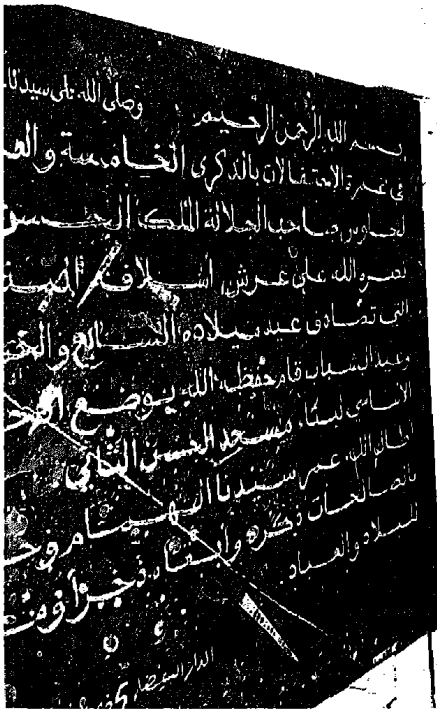 بسم الله الرحمن الرحيم وصلى الله على سيدنا
في غمرة الاحتفالات بالذكرى الخامسة
لجلوس صاحب الجلالة الملك الحسن
نصره الله على عرش اسلافه
التي تصادف عيد ميلاده السابع
وعيد الشباب قام حفظه الله بوضع
الاساسي لبناء مسجد الحسن الثاني
أطال الله عمر سيدنا الهمام
بالصالحات ذكره وأبقاه
للبلاد والعباد
الدار البيضاء 5